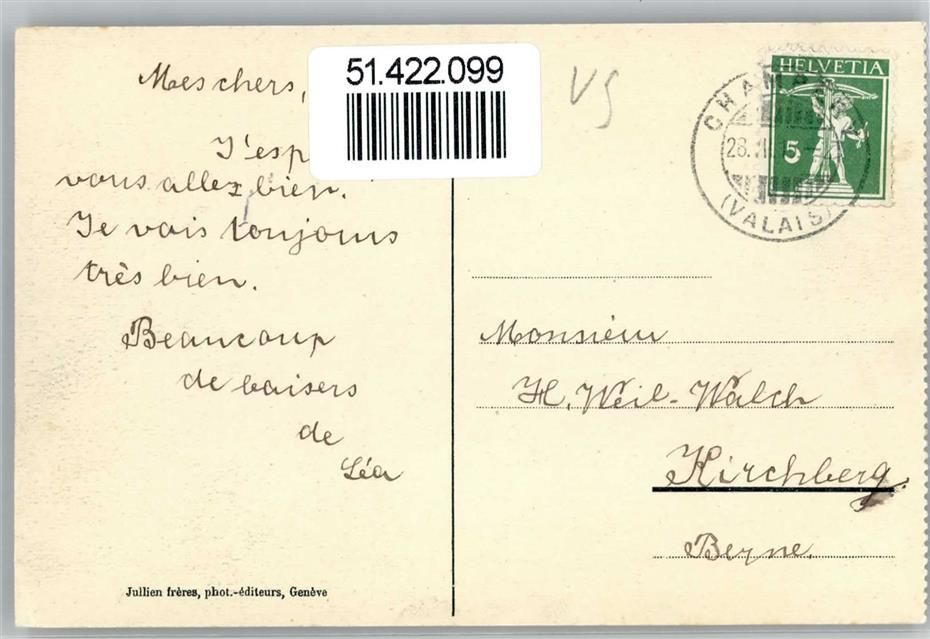 Mes chers,
J'esp
vous allez bien.
Je vais toujours
très bien.
Beaucoup
de baisers
de
Léa
Jullien frères, phot.-éditeurs, Genève
51.422.099
VS
HELVETIA
5
(VALAIS)
Monsieur
H. Weil-Walch
Kirchberg.
Berne.